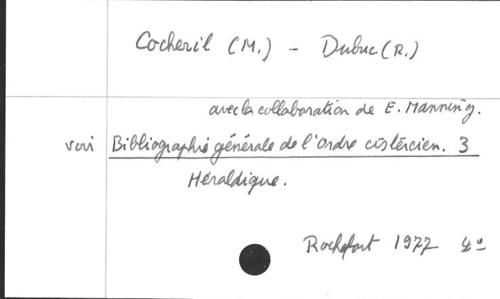 Cocheril (M.) - Dubuc (R.)
avec la collaboration de E. Manning.
voir Bibliographie générale de l'Ordre cistercien. 3
Héraldique.
Rochefort 1977 4º